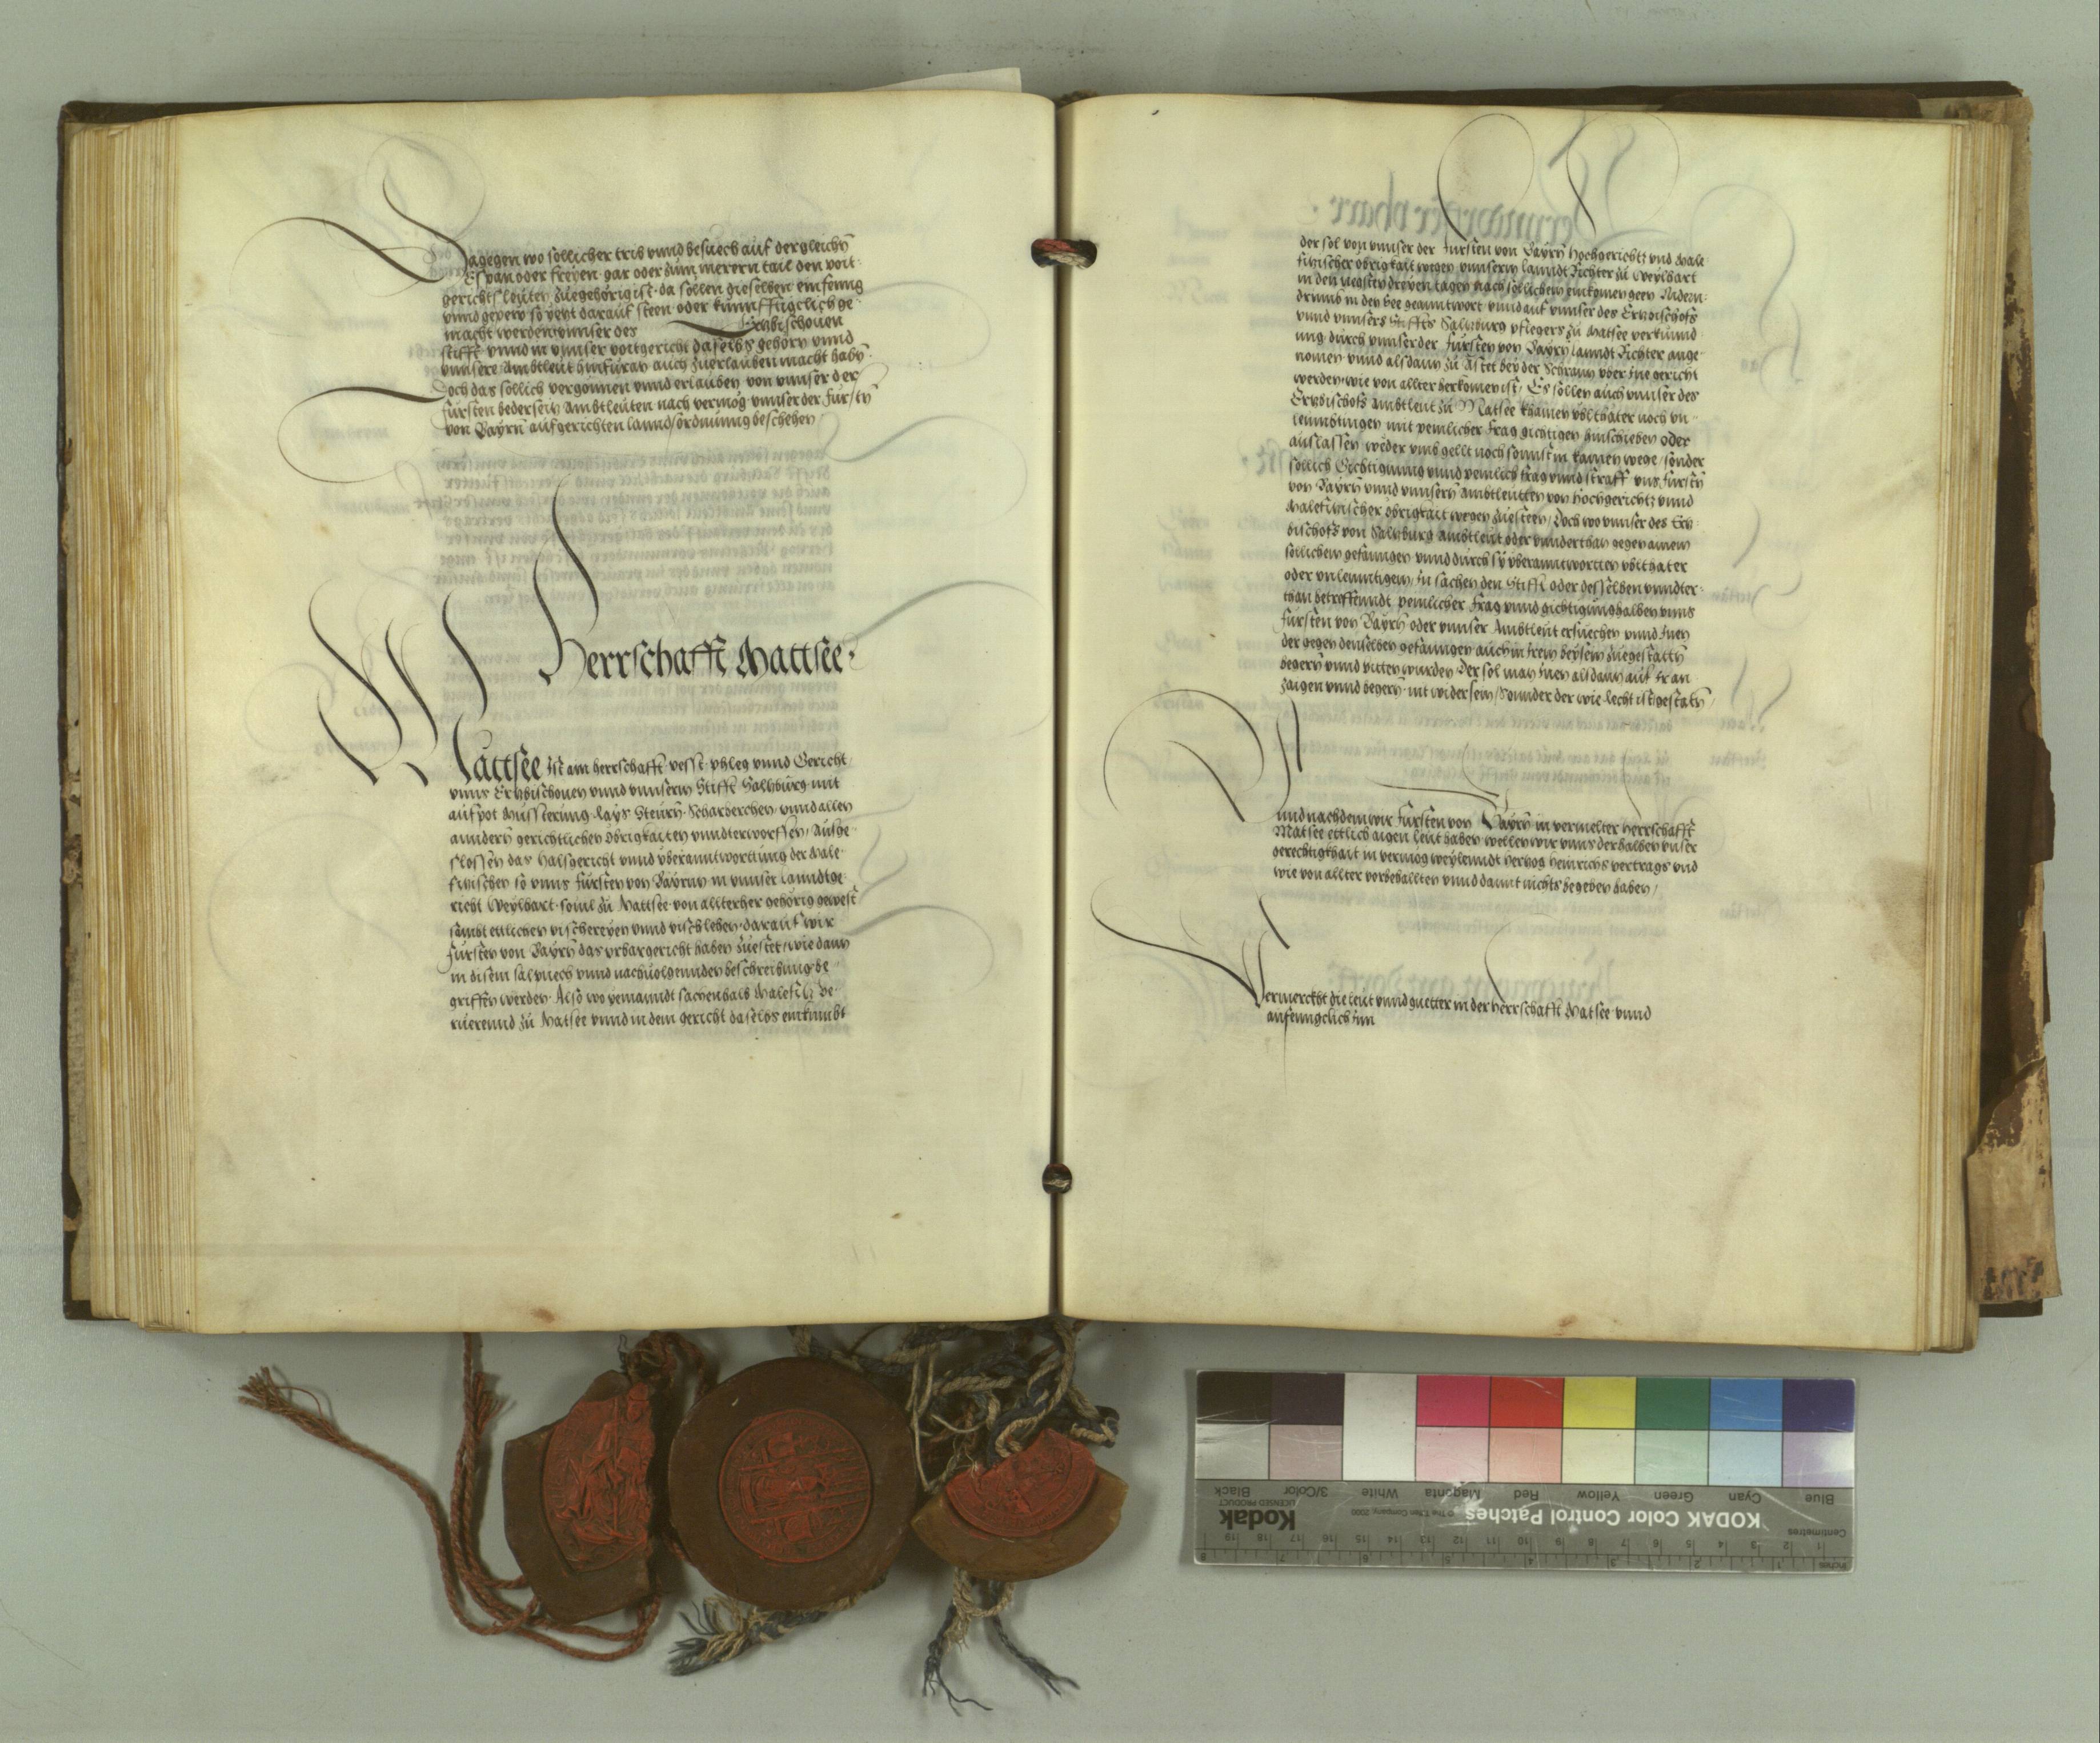 Dagegen wo sollicher trib vnnd besuech auf dergleichn̄
Espan oder freyen gar oder zum merern tail den voit-
gerichts leuten zuegehörig ist. da sollen dieselben einfenng
vnnd gepew so yetzt darauf steen oder kunnfftigclich ge-
macht werden vnnser des Ertzbischouen
stifft vnnd in vnnser voitgericht daselbs gehörn vnnd
vnnsere Ambtleut hinfuran auch zuerlauben macht habn̄.
Doch das sollich vergonnen vnnd erlauben von vnnser der
fursten bederseitz Ambtleuten nach vermög vnnser der fürstn̄
von Bayrn̄ aufgerichten lanndsordnung beschehen
Herrschafft Mattsee.
Mattsee ist ain herrschafft vesst phleg vnnd Gericht
vnns Ertzbischouen vnnd vnnserm Stifft Saltzburg mit
aufpot Mussterung Rays Steurn̄ Scharberchen vnnd allen
anndern̄ gerichtlichen Obrigkaiten vnndterworffen, Ausge-
slossen das halsgericht vnnd vberanntwortung der Male-
fitzischen so vnns Fursten von Bayrnn in vnnser lanndtge-
richt Weylhart souil zu Mattsee von allterher gehörig gewest
sambt etlichen vischereyen vnnd vischlehen. darauf wir
Fursten von Bayrn̄ das vrbargericht haben zuestet, wie dann
in disem salpuech vnnd nachuolgennder beschreibung be-
griffen werden. Also wo yemanndt sachenhalb Malefitz be-
ruerennd zu Matsee vnnd in dem gericht daselbs einkumbt
der sol von vnnser der Fursten von Bayrn̄ Hochgerichtz vnd Male-
fitzischer obrigkait wegen vnnserm lanndt Richter zu Weylhart
in den negsten dreyen tagen nach söllichem einkomen geen Nidern-
drumb in den See geanntwort vnnd auf vnnser des Ertzbischofs
vnnd vnnsers Stiffts Saltzburg pflegers zu Matsee verkunnd-
ung durch vnnser der Fürsten von Bayrn̄ lanndt Richter ange-
nomen vnnd alsdann zu Astet bey der Schrann vber jne gericht
werden, wie von allter herkomen ist, Es sollen auch vnnser des
Ertzbischofs Ambtleut zu Matsee khainen vbltháter noch vn-
leumbtigen mit peinlicher Frag gichtigen hinschieben oder
auslassen weder vmb gellt noch sonnst in kainen wege, sonder
sollich Gichtigung vnnd peinlich frag vnnd straff vns fürstn̄
von Bayrn̄ vnnd vnnsern̄ Ambtleutten von Hochgerichtz vnnd
Malefitzischer Obrigkait wegen zuesteen, Doch wo vnnser des Ertz-
bischofs von Saltzburg Ambtleut oder vnnderthan gegen ainem
söllichem gefanngen vnnd durch sy vberanntwortten vbltháter
oder vnleumtigen, in sachen den Stifft oder desselben vnndter-
than betreffenndt peinlicher Frag vnnd gichtigung halben vnns
Fürsten von Bayrn̄ oder vnnser Ambtleut ersuechen vnnd jnen
der gegen denselben gefanngen auch in jrem beysein zuegestattn̄
begern̄ vnnd pitten wurden. Der sol man jnen alsdann auf jr an-
zaigen vnnd begern̄ nit widersein, Sonnder der wie recht ist gestatn̄,
Unnd nachdem wir Fürsten von Bayrn̄ in vermelter herrschafft
Matsee ettlich aigen leut haben wellen wir vnns derhalben vnser
gerechtigkhait in vermög weylenndt hertzog Heinrichs vertrags vnd
wie von allter vorbehallten vnnd damit nichts begeben haben,
Vermerckht die leut vnnd guetter in der herrschafft Matsee vnnd
anfenngclich im
KODAK Color Control Patches
Kodak
LICENSED PRODUCT
© The Tiffen Company, 2000
Blue Cyan Green Yellow Red Magenta White 3/Color Black
Centimetres
Inches